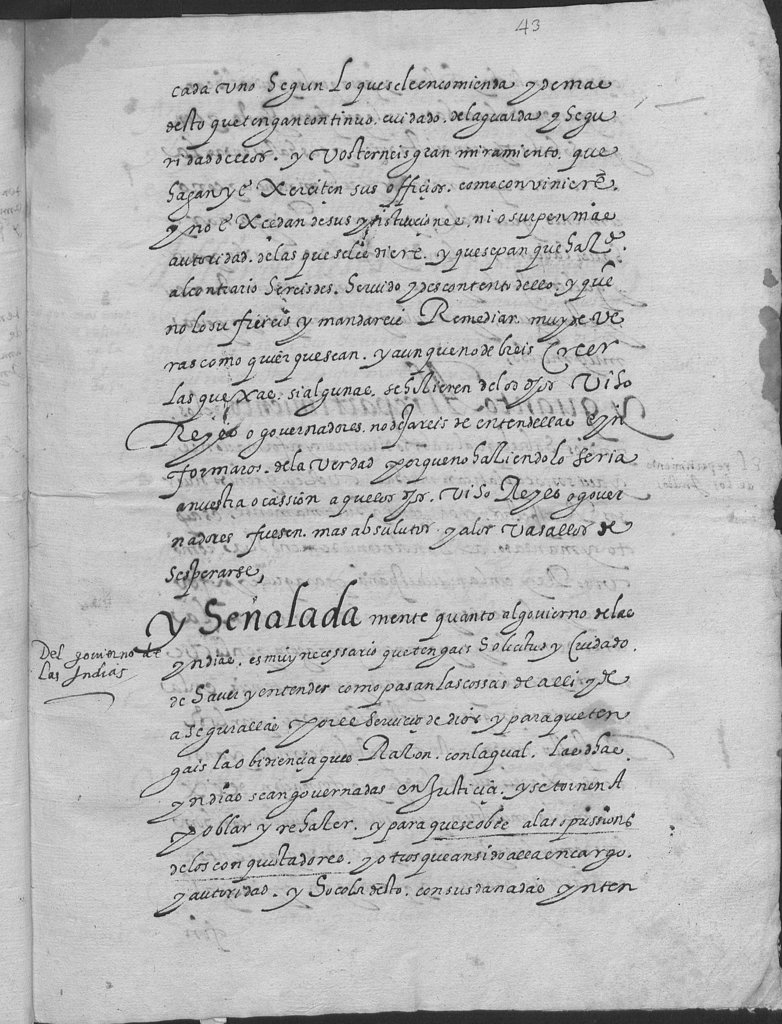 43
cada vno Segun Lo que sele encomienda y demas
desto que tengan continuo. cuidado. de la guarda y Segu
ridad dellos. y Vos terneis gran miramiento. que
hagan y eXerciten sus officios. como conviniere.
y no eXcedan de sus ynstituciones, ni osurpen mas
autoridad. de las que seles diere. y que sepan que haz.
al contrario Sereis des. Seruido y descontento dello. y que
no lo sufrireis y mandareis Remediar muy de Ve
ras como quier que sean. y aunque no debeis Creer
Las queXas. si algunas. se hizieren de los dhos Viso
Reyes o governadores. no dejareis de entendellas E yn
formaros. de la Verdad porque no haziendolo seria
a nuestra ocassion a quellos dhos. Viso Reyes o gover
nadores fuesen. mas absulutos. y a los Vasallos de
sesperarse,
Y Señalada mente quanto al govierno de las
Del govierno de
Las Indias
yndias. es muy necessario que tengais Solicitud y Cuidado.
de Saver y entender como pasan las cossas de alli y de
asegurallas por el Servicio de dios y para que ten
gais la obidiencia que es Razon. con la qual. Las dhas
yndias sean governadas en Justicia. y se tornen A
poblar y rehazer. y para que se obie a las opissiones
de los conquistadores. y otros que an sido alla en cargo.
y autoridad. y So color desto. con sus dañadas ynten